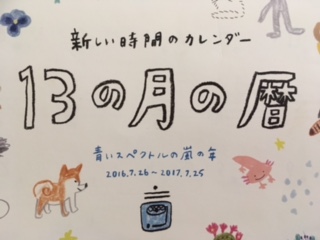 新しい時間のカレンダー
13の月の暦
青いスペクトルの嵐の年
2016.7.26~2017.7.25